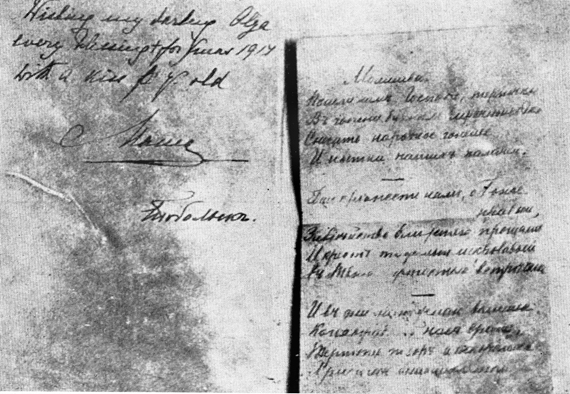 Wishing my darling Olga
every blessing for Xmas 1917
with a kiss
old
Mama
Тобольскъ.
Молитва.
Пошли намъ, Господи, терпѣнье
Въ годину буйныхъ мрачныхъ
Сносить народное гоненье
И пытки нашихъ
Дай крѣпости намъ, о Боже
правый,
Злодѣйство ближняго прощать
И крестъ тяжелый и кровавый
Съ Твоею кротостью встрѣчать
И въ дни мятежнаго
Когда насъ враги,
Терпѣть позоръ и